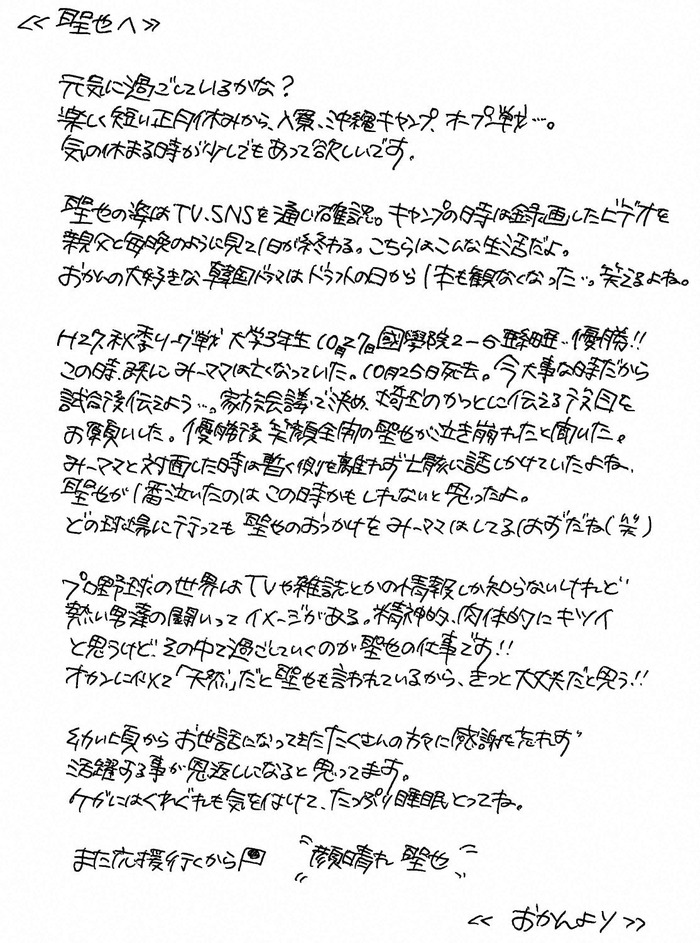 ≪聖也へ≫
元気に過ごしているかな？
楽しく短い正月休みから、入寮、沖縄キャンプ、オープン戦…。
気の休まる時が少しでもあって欲しいです。
聖也の姿はTV、SNSを通じ確認。キャンプの時は録画したビデオを
親父と毎晩のように見て1日が終わる。こちらはこんな生活だよ。
おかんの大好きな韓国ドラマはドラフトの日から1本も観なくなった…。笑えるよね。
H27秋季リーグ戦 大学3年生 10月27日國學院2-6亜細亜…優勝!!
この時、既にみーママは亡くなっていた。10月26日死去。今大事な時だから
試合後伝えよう…。家族会議で決め、埼玉のかっとに伝える役目を
お願いした。優勝後 笑顔全開の聖也が泣き崩れたと聞いた。
みーママと対面した時は暫く側を離れず亡骸に話しかけていたよね、
聖也が1番泣いたのは この時かもしれないと思ったよ。
どの球場に行っても 聖也のおっかけを みーママはしてるはずだね(笑)
プロ野球の世界はTVや雑誌とかの情報しか知らないけれど
熱い男達の闘いってイメージがある。精神的、肉体的にキツイ
と思うけど、その中で過ごしていくのが聖也の仕事です!!
オカンに似て「天然」だと聖也も言われているから、きっと大丈夫だと思う!!
幼い頃から お世話になってきた たくさんの方々に感謝を忘れず
活躍する事が恩返しになると思ってます。
ケガにはくれぐれも気を付けて、たっぷり睡眠とってね。
また応援行くから 顔晴れ 聖也
≪おかんより≫